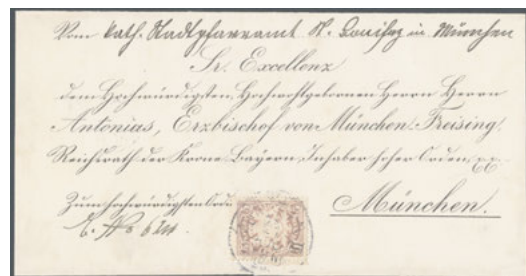 Vom Kath. Stadtpfarramt St. Bonifaz in München
Sr. Excellenz
dem Hochwürdigsten, Hochwohlgebornen Herrn Herrn
Antonius, Erzbischof von München-Freising,
Reichsrath der Krone Bayern, Inhaber hoher Orden, etc.
Zum hochwürdigsten Ord
München.
E. No